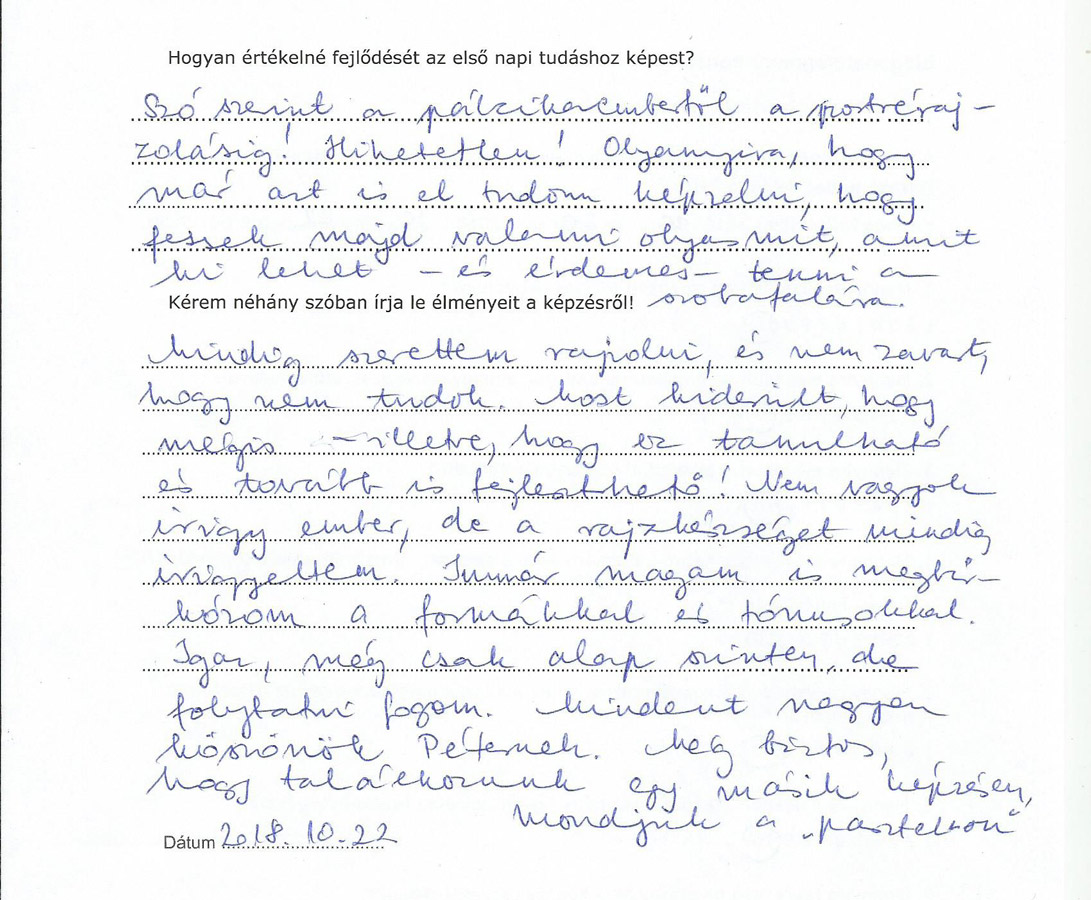 Hogyan értékelné fejlődését az első napi tudáshoz képest?
Szó szerint a pálcikaembertől a portréraj-
zolásig! Hihetetlen! Olyannyira, hogy
már azt is el tudom képzelni, hogy
fessek majd valami olyasmit, amit
ki lehet – és érdemes – tenni a
szobafalára.
Kérem néhány szóban írja le élményeit a képzésről!
Mindig szerettem rajzolni, és nem zavart,
hogy nem tudok. Most kiderült, hogy
mégis – illetve, hogy ez tanulható
és tovább is fejleszthető! Nem vagyok
irigy ember, de a rajzkészséget mindig
irigyeltem. Immár magam is megbir-
kózom a formákkal és tónusokkal.
Igaz, még csak alap szinten, de
folytatni fogom. Mindent nagyon
köszönök Péternek. Még biztos,
hogy találkozunk egy másik képzésen,
mondjuk a „pasztellon"
Dátum 2018.10.22